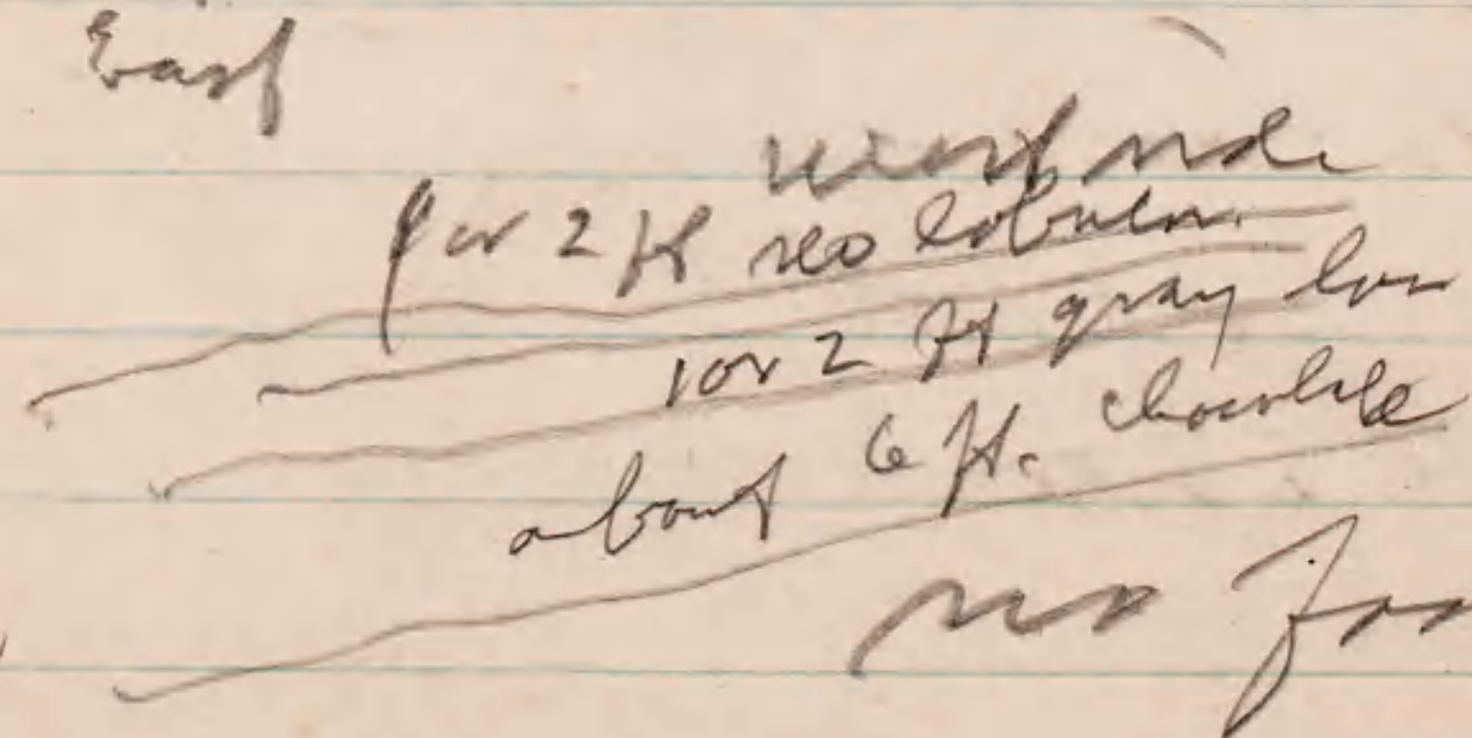 East
west side
1 or 2 ft red
1 or 2 ft gray
about 6 ft. chocolate
no